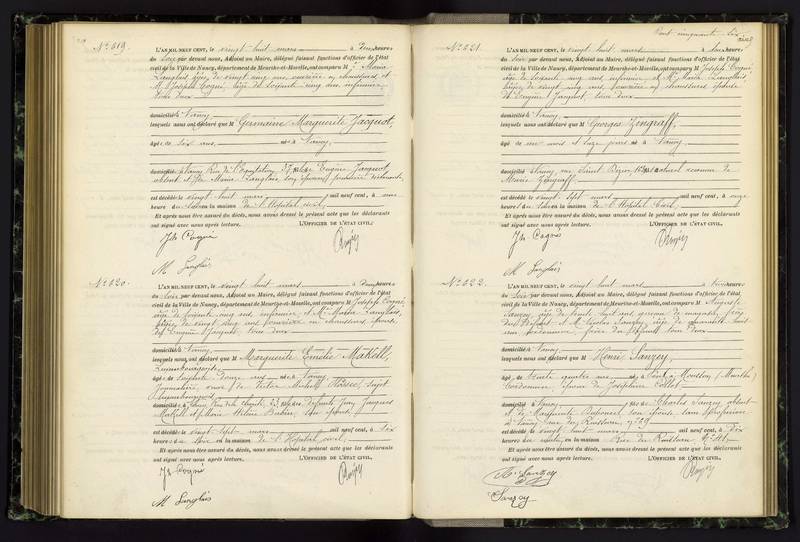 N° 619.
L'AN MIL NEUF CENT, le vingt huit mars à deux heures
du soir par devant nous, Adjoint au Maire, délégué faisant fonctions d'officier de l'état
civil de la Ville de Nancy, département de Meurthe-et-Moselle, ont comparu Marie
Langlais âgée de vingt cinq ans, ouvrière en chaussures et
M. Joseph Cogné âgé de soixante cinq ans infirmier
tous deux
domicilié à Nancy
lesquels nous ont déclaré que M Germaine Marguerite Jacquot,
âgée de six ans, née à Nancy,
domiciliée à Nancy Rue de l'Equitation, 37, Eugène Jacquot
absent et Marie Langlais son épouse,
est décédée le vingt huit mars mil neuf cent, à une
heure du en la maison de l'Hôpital civil,
Et après nous être assuré du décès, nous avons dressé le présent acte que les déclarants
ont signé avec nous après lecture. L'OFFICIER DE L'ÉTAT CIVIL,
Jh Cogné
M Langlais
N° 620.
L'AN MIL NEUF CENT, le vingt huit mars à deux heures
du soir par devant nous, Adjoint au Maire, délégué faisant fonctions d'officier de l'état
civil de la Ville de Nancy, département de Meurthe-et-Moselle, ont comparu M Joseph Cogné
âgé de soixante cinq ans infirmier et Marie Langlais,
âgée de vingt cinq ans ouvrière en chaussures épouse
de Eugène Jacquot tous deux
domicilié à Nancy
lesquels nous ont déclaré que M Marguerite Emélie
Luxembourgeoise
âgée de soixante douze ans née à Nancy
Journalière, veuve de Victor sujet
Luxembourgeois
domiciliée à Nancy, rue de la charité, 23, défunts Jean Jacques
et Marie Hélène son épouse
est décédée le vingt sept mars mil neuf cent, à six
heures du soir en la maison de l'Hôpital civil,
Et après nous être assuré du décès, nous avons dressé le présent acte que les déclarants
ont signé avec nous après lecture. L'OFFICIER DE L'ÉTAT CIVIL,
Jh Cogné
M Langlais
Cent cinquante six
N° 621.
L'AN MIL NEUF CENT, le vingt huit mars à deux heures
du soir par devant nous, Adjoint au Maire, délégué faisant fonctions d'officier de l'état
civil de la Ville de Nancy, département de Meurthe-et-Moselle, ont comparu M Joseph Cogné
âgé de soixante cinq ans infirmier et Marie Langlais,
âgée de vingt cinq ans ouvrière en chaussures épouse
de Eugène Jacquot, tous deux
domicilié à Nancy
lesquels nous ont déclaré que M Georges Zengraff,
âgé de un mois et onze jours né à Nancy,
domicilié à Nancy, rue Saint Dizier, naturel reconnu de
Marie Zengraff
est décédé le vingt sept mars mil neuf cent, à onze
heures du en la maison de l'Hôpital Civil,
Et après nous être assuré du décès, nous avons dressé le présent acte que les déclarants
ont signé avec nous après lecture. L'OFFICIER DE L'ÉTAT CIVIL,
Jh Cogné
M Langlais
N° 622.
L'AN MIL NEUF CENT, le vingt huit mars à trois heures
du soir par devant nous, Adjoint au Maire, délégué faisant fonctions d'officier de l'état
civil de la Ville de Nancy, département de Meurthe-et-Moselle, ont comparu M Auguste
Sanzey âgé de trente huit ans garçon de magasin, frère
du défunt et M Nicolas Sanzey âgé de quarante huit
ans cordonnier, frère du défunt tous deux
domicilié à Nancy
lesquels nous ont déclaré que M Henri Sanzey,
âgé de trente quatre ans né à Pont à Mousson (Meurthe)
Cordonnier, époux de Joséphine Collet
domicilié à Nancy fils de Charles Sanzey absent
et de Marguerite son épouse sans profession
à Nancy, rue n° 29
est décédé le vingt huit mars mil neuf cent, à dix
heures du matin, en la maison Rue N° 41,
Et après nous être assuré du décès, nous avons dressé le présent acte que les déclarants
ont signé avec nous après lecture. L'OFFICIER DE L'ÉTAT CIVIL,
Sanzey
Sanzey